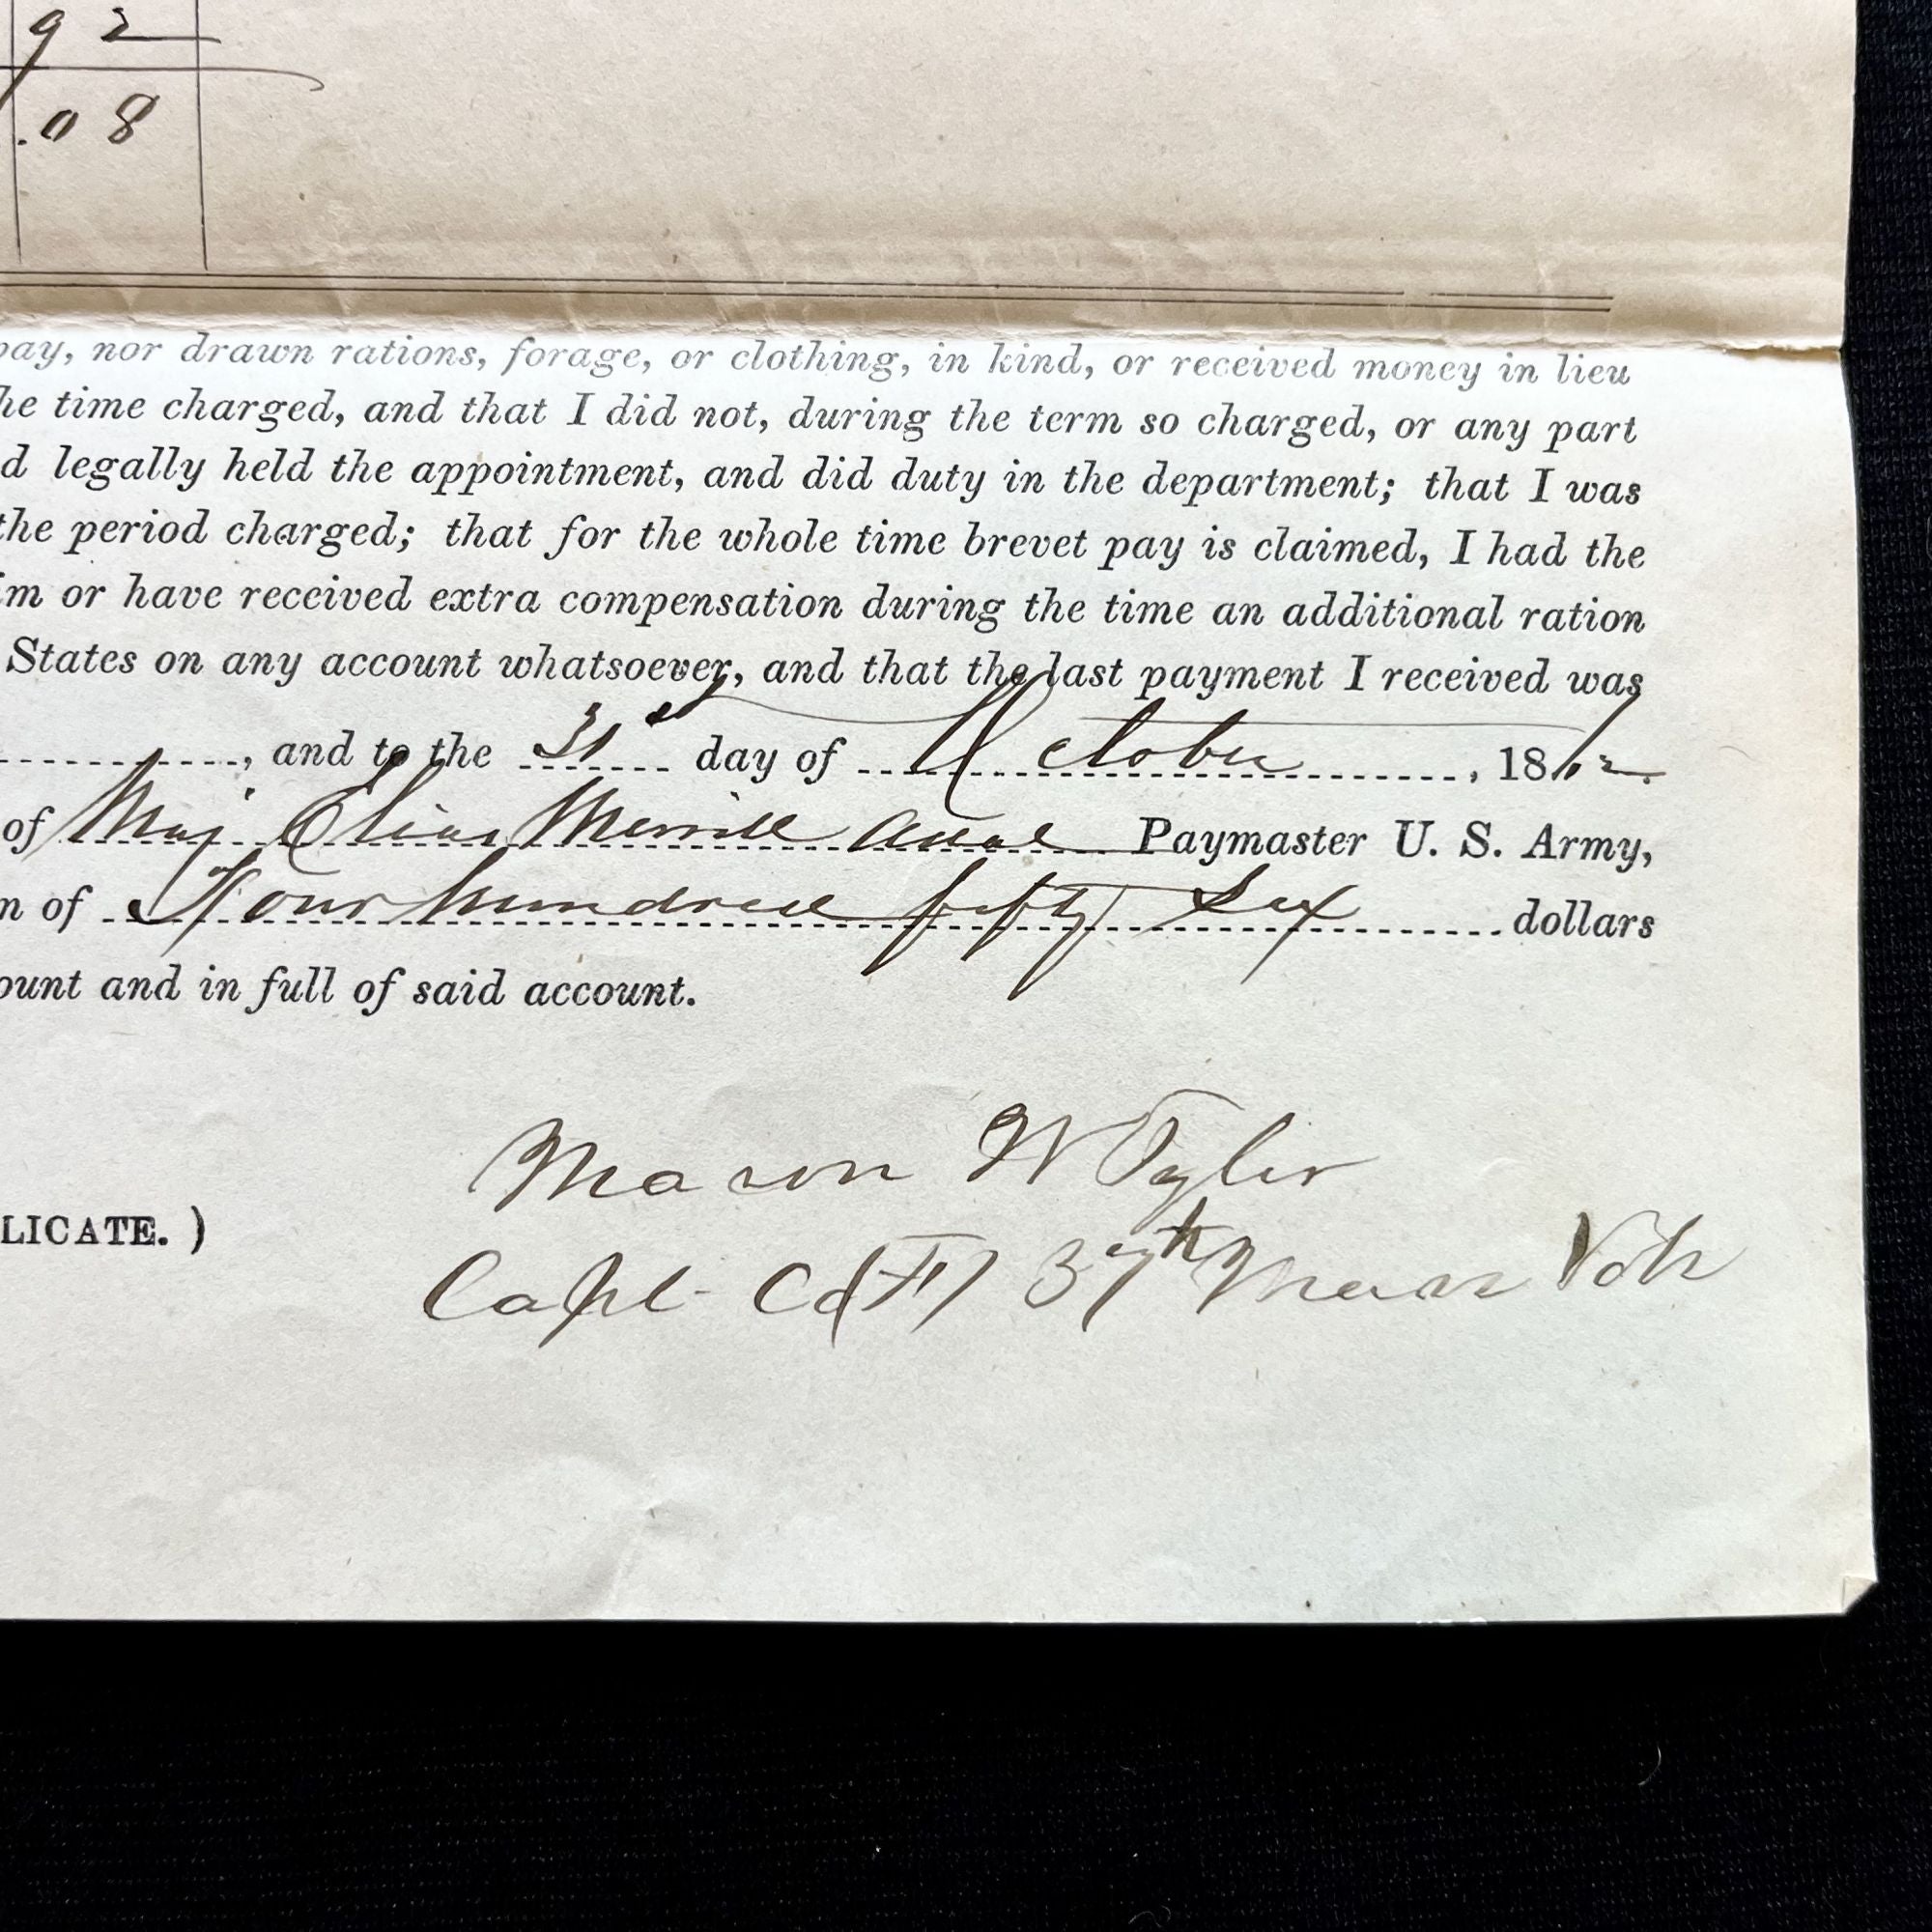 92
.08
pay, nor drawn rations, forage, or clothing, in kind, or received money in lieu
he time charged, and that I did not, during the term so charged, or any part
d legally held the appointment, and did duty in the department; that I was
the period charged; that for the whole time brevet pay is claimed, I had the
im or have received extra compensation during the time an additional ration
States on any account whatsoever, and that the last payment I received was
, and to the 31st day of October , 1862.
of Maj. Elias Merrill Paymaster U. S. Army,
n of Four hundred fifty six dollars
ount and in full of said account.
Mason W Tyler
LICATE. )
Capt Co (F) 37th Mass Vols